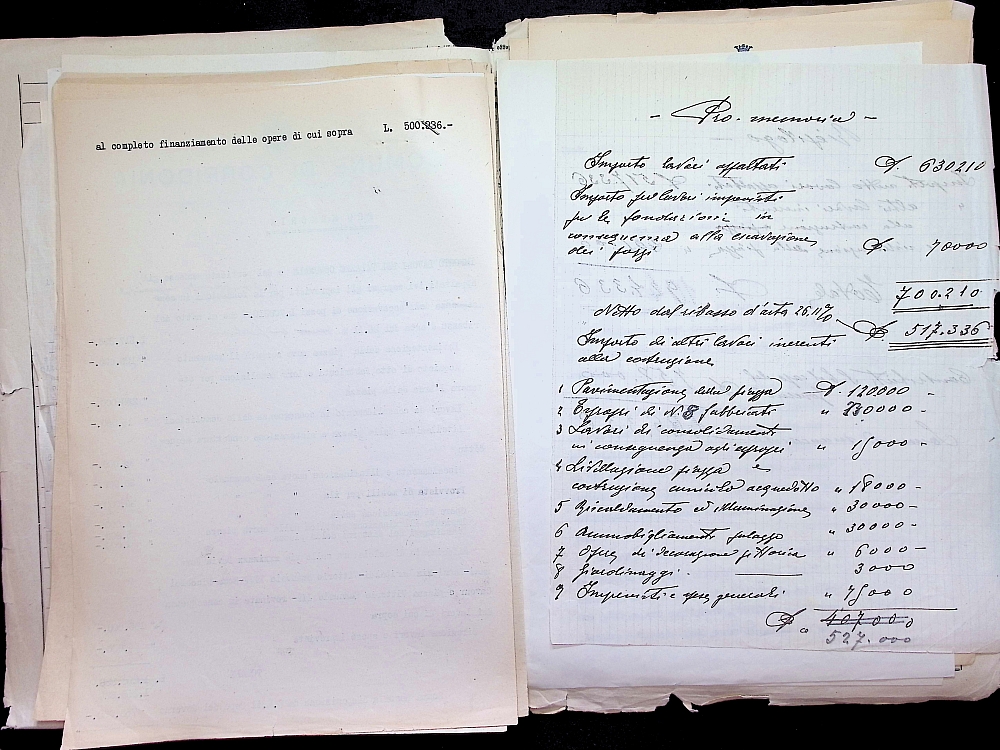 al completo finanziamento delle opere di cui sopra L. 500.236.-
- Pro-memoria -
Importo lavori appaltati £. 630210
Importo per lavori imprevisti
per le fondazioni in
conseguenza alla escavazione
dei pozzi £. 70000
700.210
Netto del ribasso d'asta 26.11%
£. 517.336
Importo di altri lavori inerenti
alla costruzione
1 Pavimentazione della piazza £. 120000 -
2 Espropri di N. 8 fabbricati " 230000 -
3 Lavori di consolidamento
in conseguenza agli espropri " 15000 -
4 Livellazione piazza e
costruzione cunicolo acquedotto " 18000 -
5 Riscaldamento ed illuminazione " 30000 -
6 Ammobigliamento palazzo " 30000 -
7 Opere di decorazione pittorica " 6000 -
8 Giardinaggi. 3000
9 Imprevisti e spese generali " 75000
£. 407.000
527.000